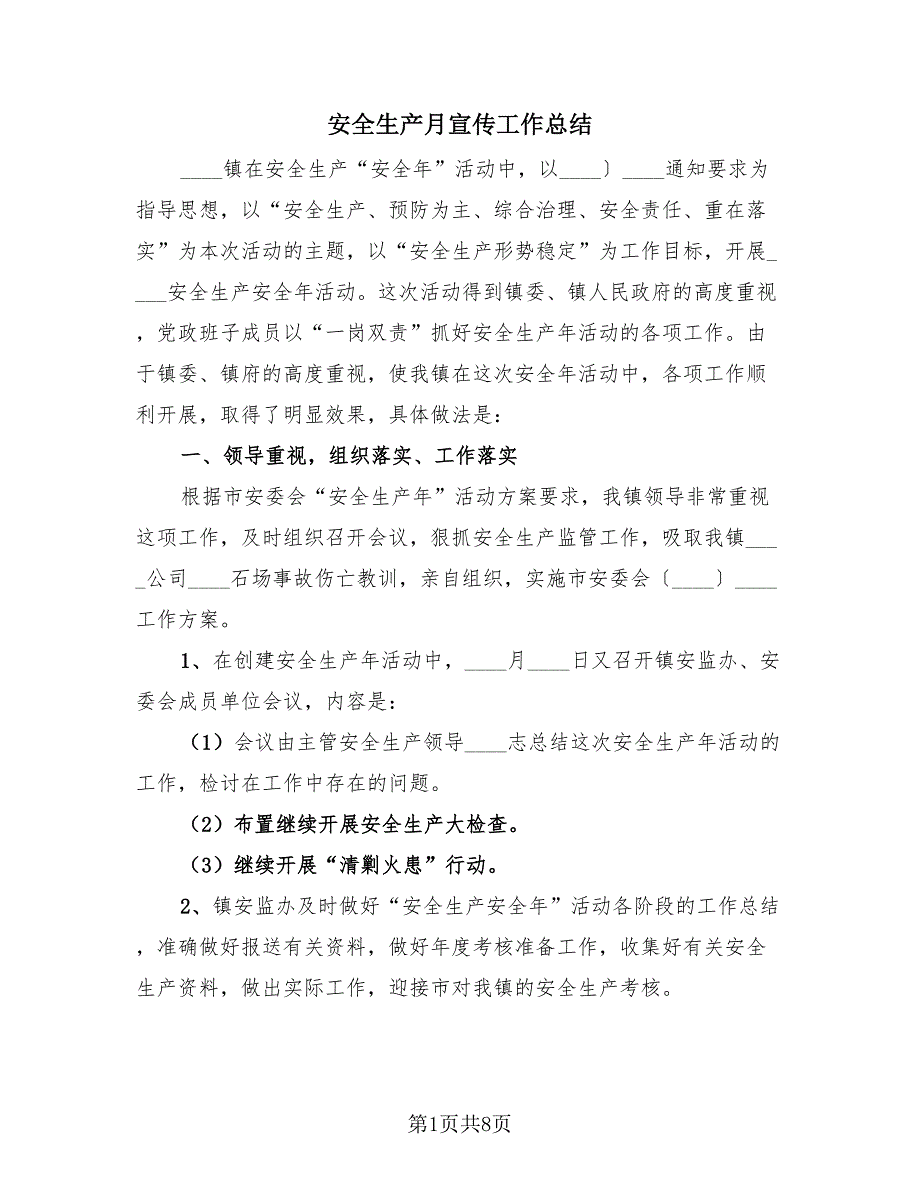 安全生产月宣传工作总结
____镇在安全生产“安全年”活动中，以____〕____通知要求为
指导思想，以“安全生产、预防为主、综合治理、安全责任、重在落
实”为本次活动的主题，以“安全生产形势稳定”为工作目标，开展_
___安全生产安全年活动。这次活动得到镇委、镇人民政府的高度重视
，党政班子成员以“一岗双责”抓好安全生产年活动的各项工作。由
于镇委、镇府的高度重视，使我镇在这次安全年活动中，各项工作顺
利开展，取得了明显效果，具体做法是：
一、领导重视，组织落实、工作落实
根据市安委会“安全生产年”活动方案要求，我镇领导非常重视
这项工作，及时组织召开会议，狠抓安全生产监管工作，吸取我镇___
_公司____石场事故伤亡教训，亲自组织，实施市安委会〔____〕____
工作方案。
1、在创建安全生产年活动中，____月____日又召开镇安监办、安
委会成员单位会议，内容是：
（1）会议由主管安全生产领导____志总结这次安全生产年活动的
工作，检讨在工作中存在的问题。
（2）布置继续开展安全生产大检查。
（3）继续开展“清剿火患”行动。
2、镇安监办及时做好“安全生产安全年”活动各阶段的工作总结
，准确做好报送有关资料，做好年度考核准备工作，收集好有关安全
生产资料，做出实际工作，迎接市对我镇的安全生产考核。
第1页共8页